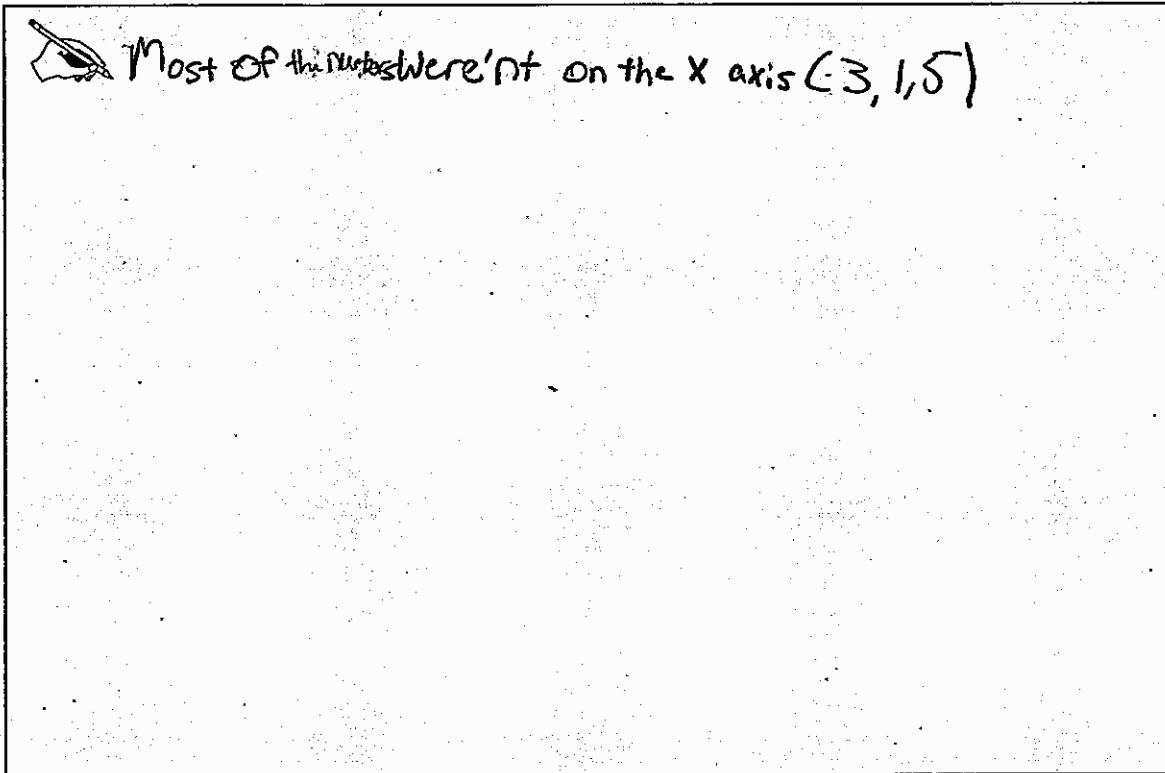 Most of the numbers Were'nt on the X axis (-3, 1, 5)